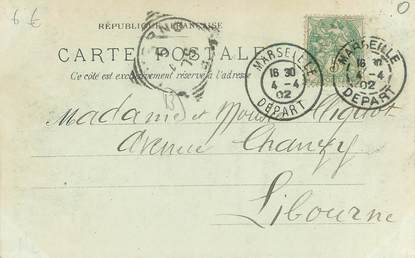 6 €
0
RÉPUBLIQUE FRANÇAISE
CARTE POSTALE
Ce côté est exclusivement réservé à l'adresse
MARSEILLE
16 30
4 - 4
02
DEPART
MARSEILLE
16 30
4 - 4
02
DEPART
Madame et
Avenue Chanzy
Libourne